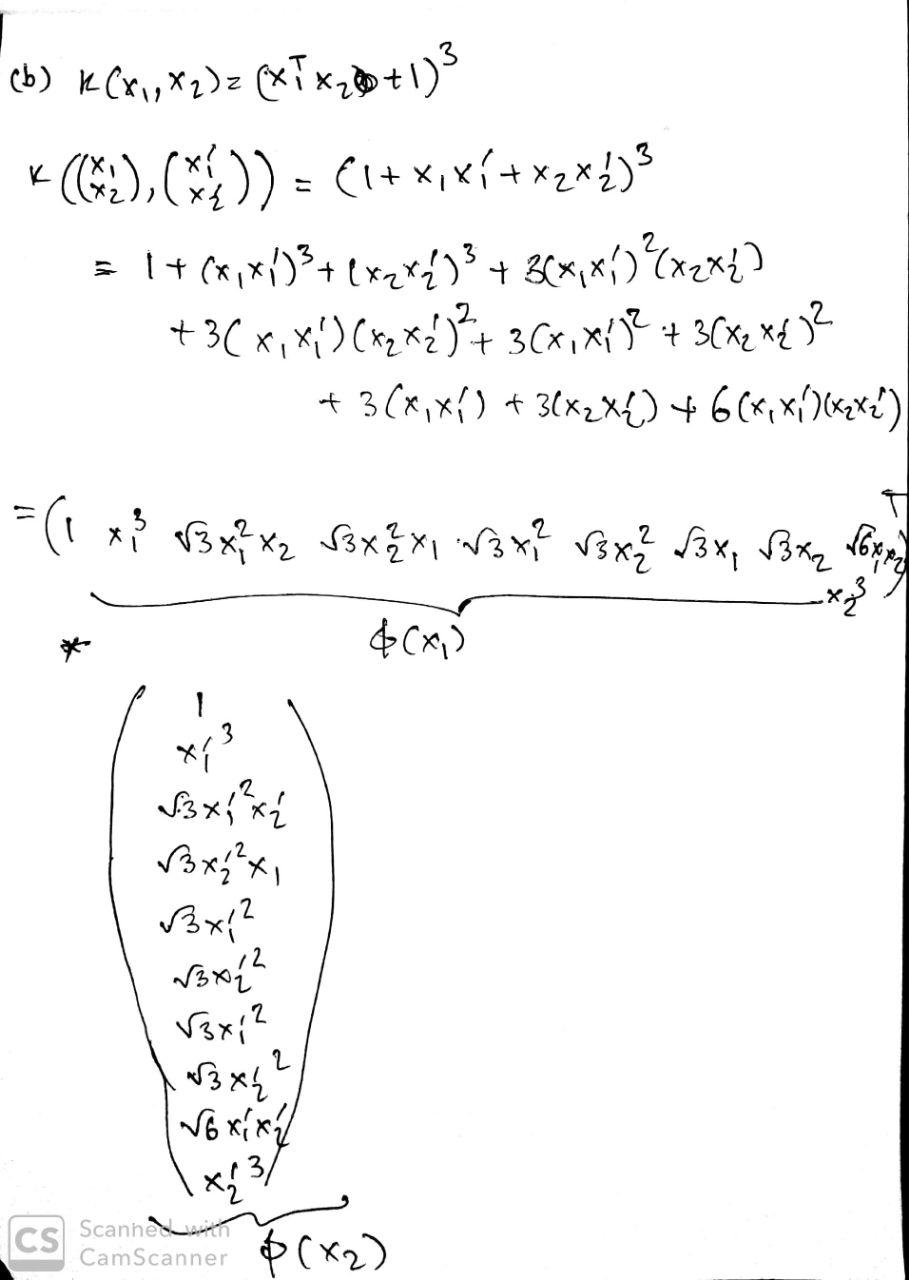 (b) K(x₁, x₂) = (x₁ᵀx₂ + 1)³
K((x₁ x₂), (x₁′ x₂′)) = (1 + x₁x₁′ + x₂x₂′)³
= 1 + (x₁x₁′)³ + (x₂x₂′)³ + 3(x₁x₁′)²(x₂x₂′)
+ 3(x₁x₁′)(x₂x₂′)² + 3(x₁x₁′)² + 3(x₂x₂′)²
+ 3(x₁x₁′) + 3(x₂x₂′) + 6(x₁x₁′)(x₂x₂′)
= (1 x₁³ √3x₁²x₂ √3x₂²x₁ √3x₁² √3x₂² √3x₁ √3x₂ √6x₁x₂ x₂³)ᵀ
ϕ(x₁)
*
1
x₁′³
√3x₁′²x₂′
√3x₂′²x₁
√3x₁′²
√3x₂′²
√3x₁′²
√3x₂′²
√6x₁′x₂′
x₂′³
ϕ(x₂)
CS Scanned with
CamScanner